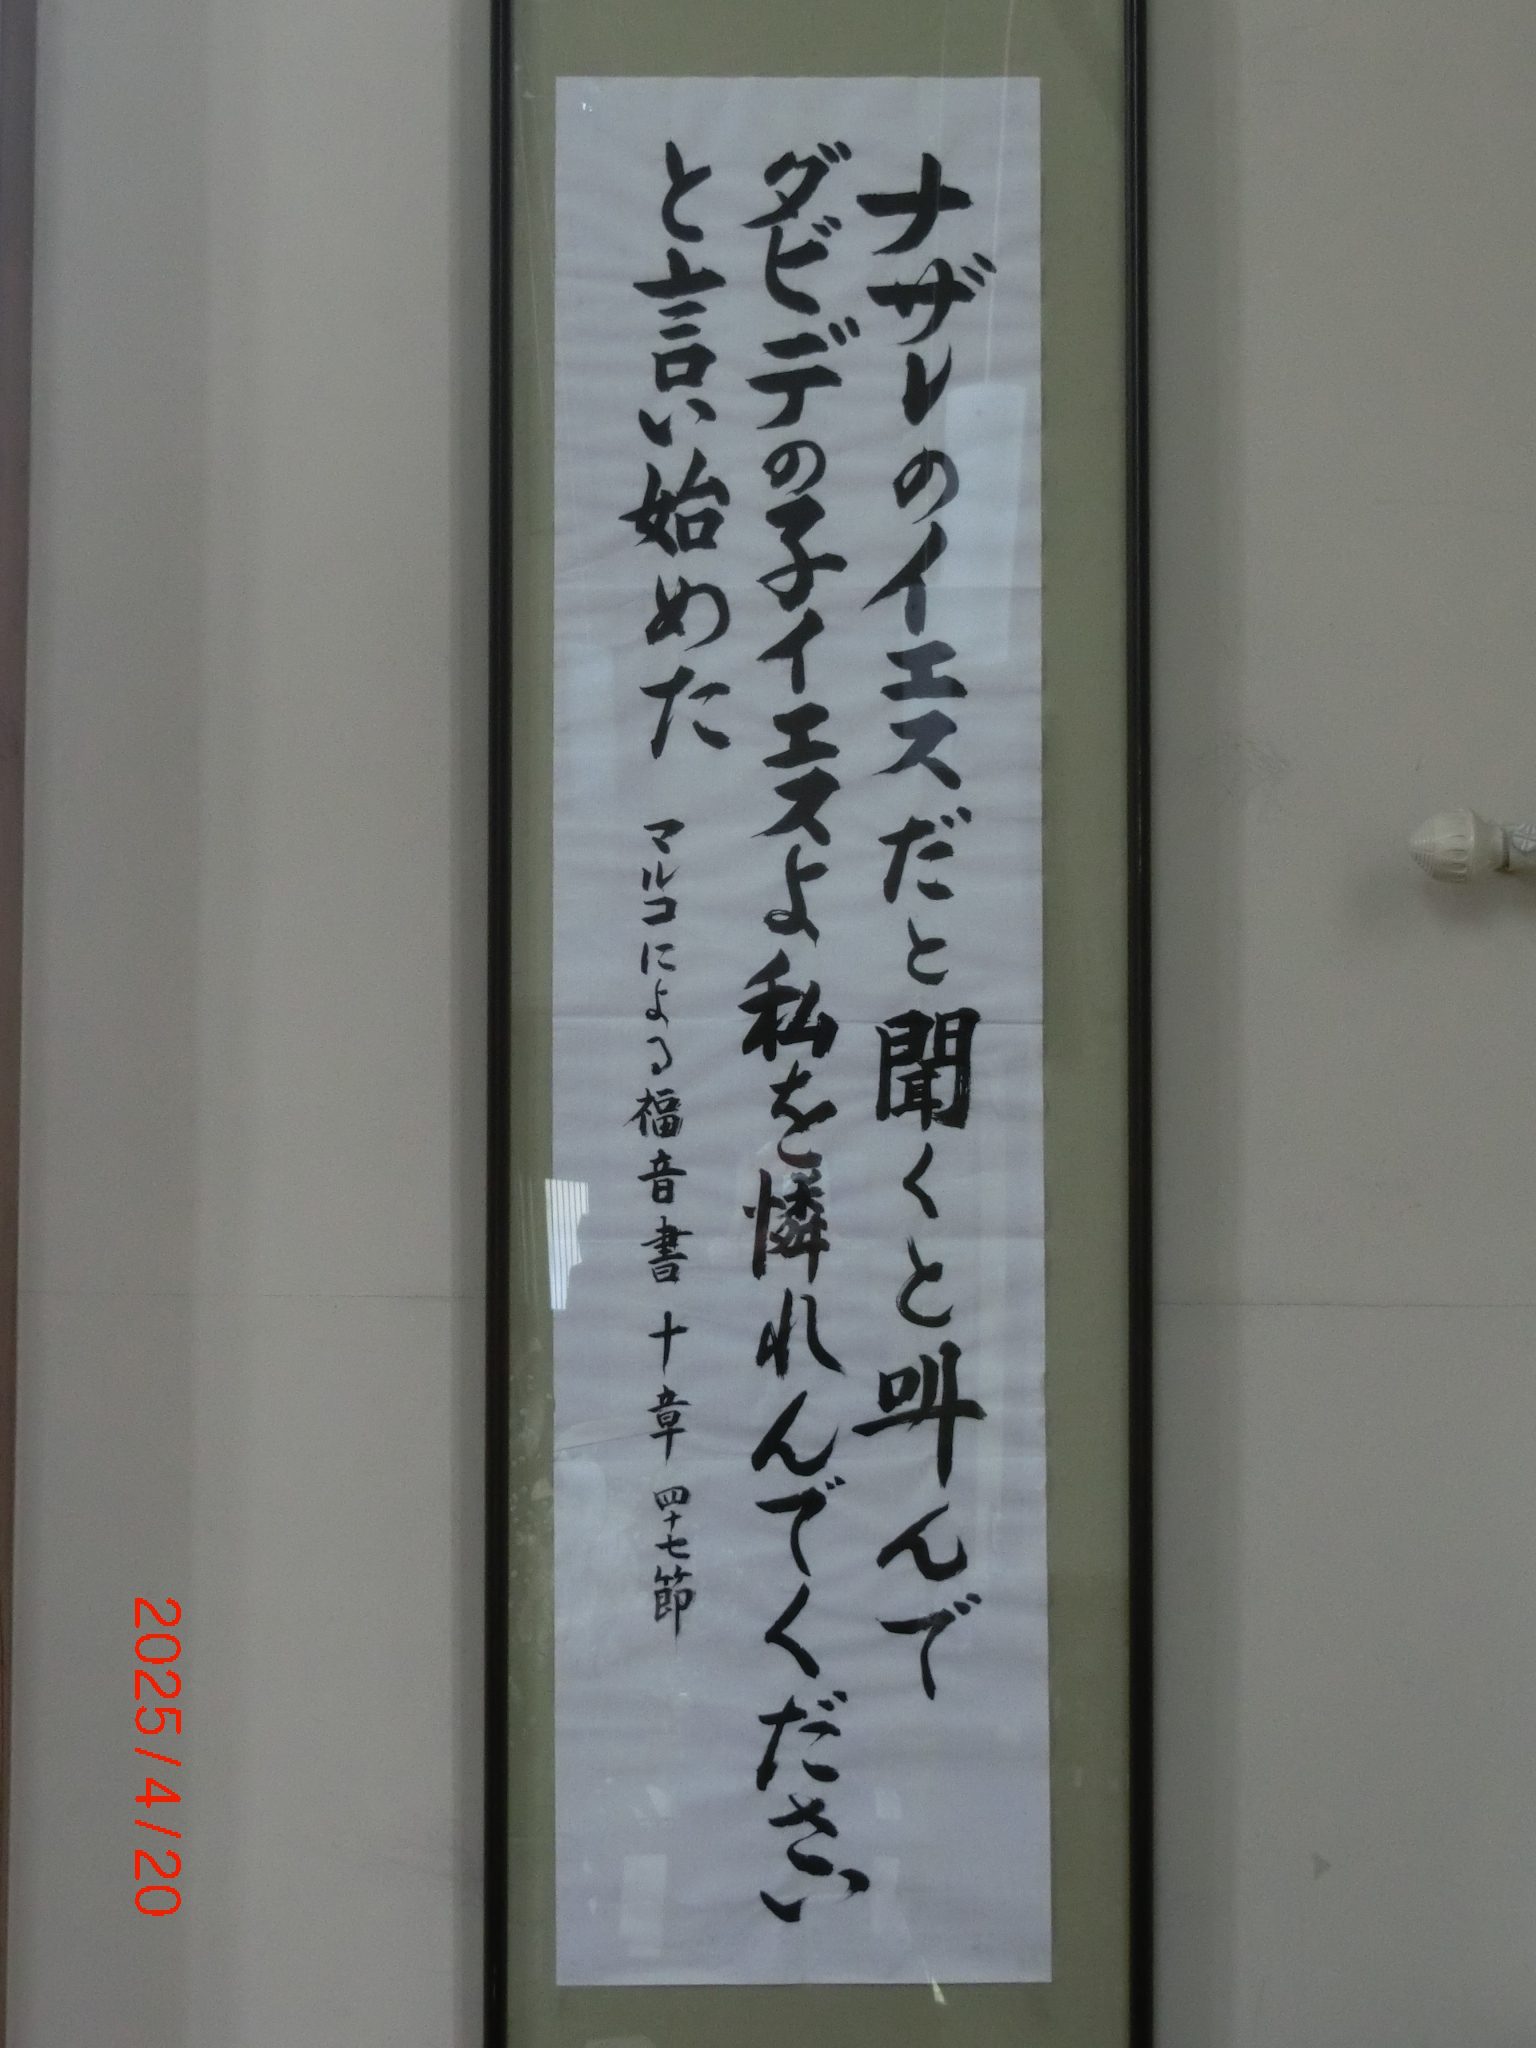 ナザレのイエスだと聞くと叫んで
ダビデの子イエスよ私を憐れんでください
と言い始めた
マルコによる福音書 十章 四十七節
2025/4/20